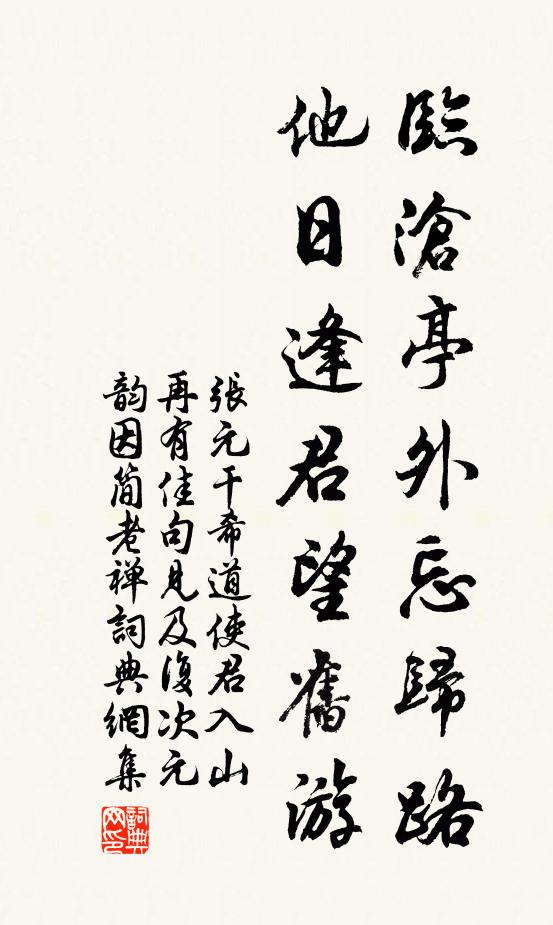 臨滄亭外忘歸路
他日逢君望舊游
張元干希道使君入山
再有佳句見及復次元
韵因簡老禅詞典網集
詞典网印